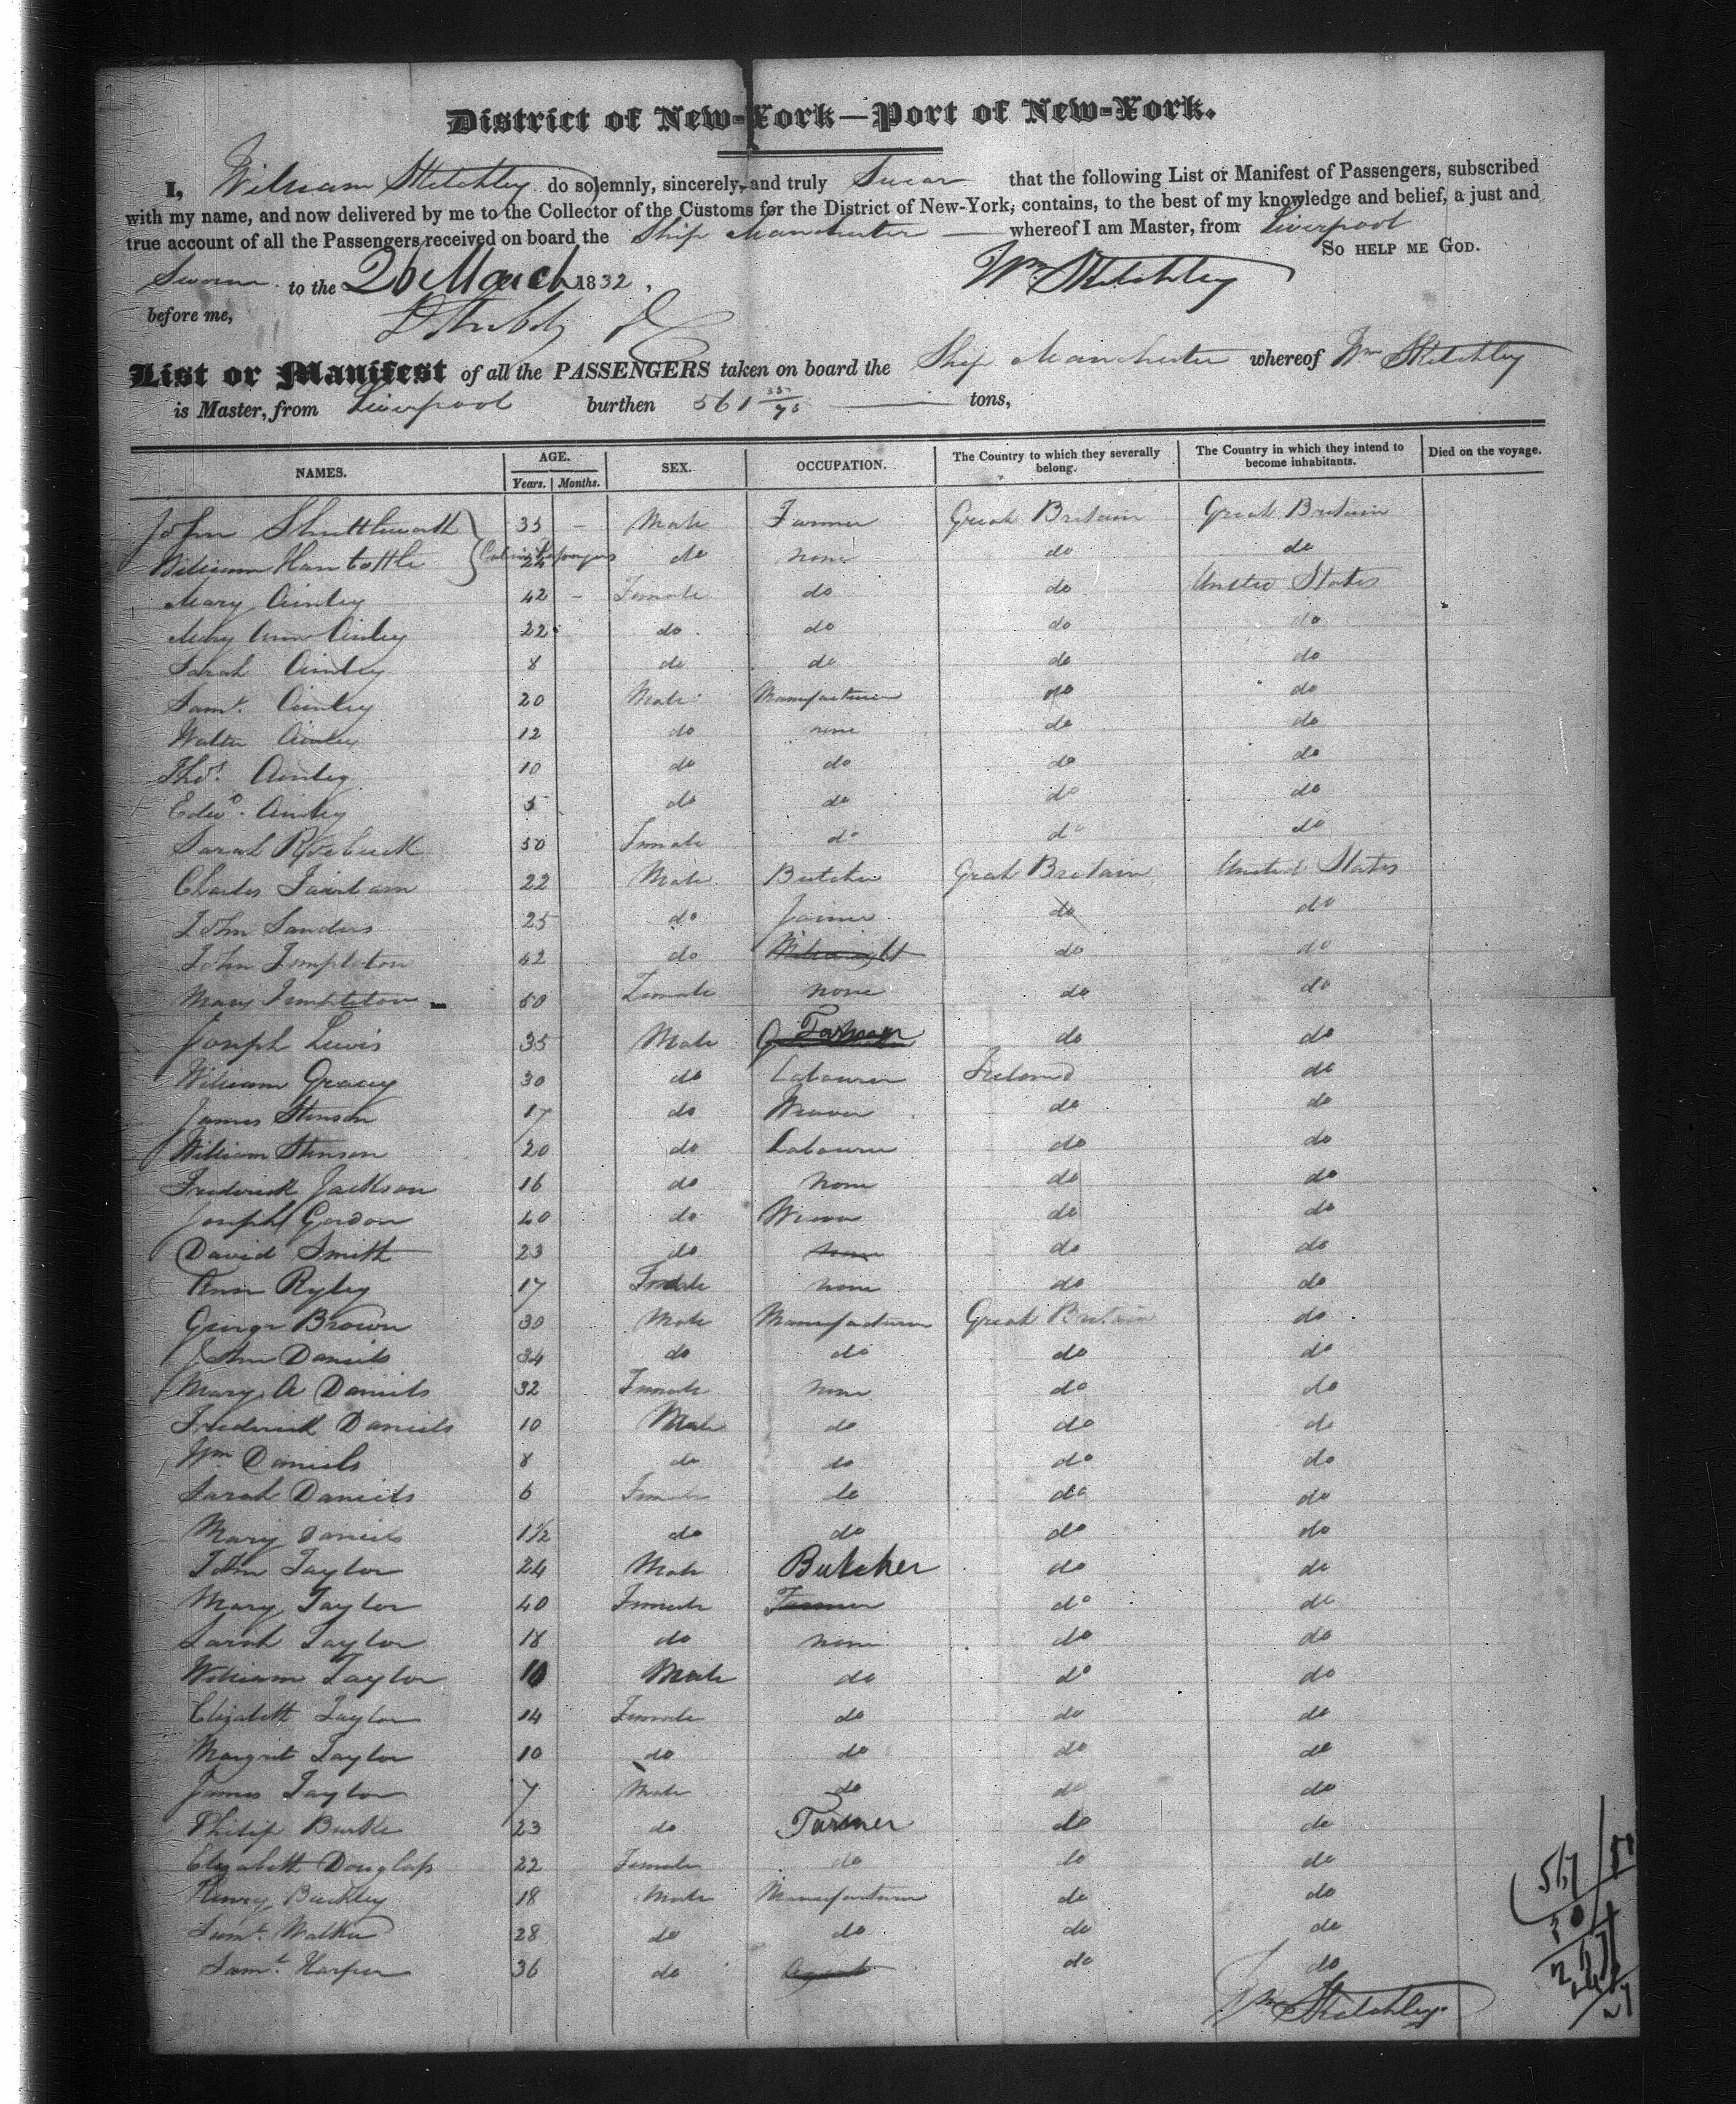 District of New-York—Port of New-York.
I, William Sketchley do solemnly, sincerely, and truly Swear that the following List or Manifest of Passengers, subscribed
with my name, and now delivered by me to the Collector of the Customs for the District of New-York, contains, to the best of my knowledge and belief, a just and
true account of all the Passengers received on board the Ship Manchester whereof I am Master, from Liverpool
SO HELP ME GOD.
Sworn to the 26 March 1832. Wm Sketchley
before me,
List or Manifest of all the PASSENGERS taken on board the Ship Manchester whereof Wm Sketchley
is Master, from Liverpool burthen 561 tons,
NAMES. AGE. Years. Months. SEX. OCCUPATION. The Country to which they severally belong. The Country in which they intend to become inhabitants. Died on the voyage.
John Shuttleworth 35 – Male Farmer Great Britain Great Britain
William 24 do none do do
Mary Ainley 42 – Female do do United States
Mary Ann Ainley 22 do do do do
Sarah Ainley 8 do do do do
Saml. Ainley 20 Male Manufacturer do do
Walter Ainley 12 do none do do
Thos. Ainley 10 do do do do
Edwd. Ainley 5 do do do do
Sarah Roebuck 50 Female do do do
Charles Fairbairn 22 Male Butcher Great Britain United States
John Sanders 25 do Joiner do do
John Templeton 42 do do do
Mary Templeton 50 Female none do do
Joseph Lewis 35 Male Farmer do do
William Gracey 30 do Labourer Ireland do
James Stinson 17 do Weaver do do
William Stinson 20 do Labourer do do
Frederick Jackson 16 do None do do
Joseph Gordon 40 do Weaver do do
David Smith 23 do none do do
Ann Ryley 17 Female none do do
George Brown 30 Male Manufacturer Great Britain do
John Daniels 34 do do do do
Mary A Daniels 32 Female none do do
Frederick Daniels 10 Male do do do
Wm Daniels 8 do do do do
Sarah Daniels 6 Female do do do
Mary Daniels 1½ do do do do
John Taylor 24 Male Butcher do do
Mary Taylor 40 Female Farmer do do
Sarah Taylor 18 do none do do
William Taylor Male do do do
Elizabeth Taylor 14 Female do do do
Margret Taylor 10 do do do do
James Taylor 7 Male do do do
Philip Burke 23 do Farmer do do
Elizabeth Douglass 22 Female do do do
Henry Buckley 18 Male Manufacturer do do
Saml. Walker 28 do do do do
Saml. Harper 36 do Agent do do
Wm Sketchley